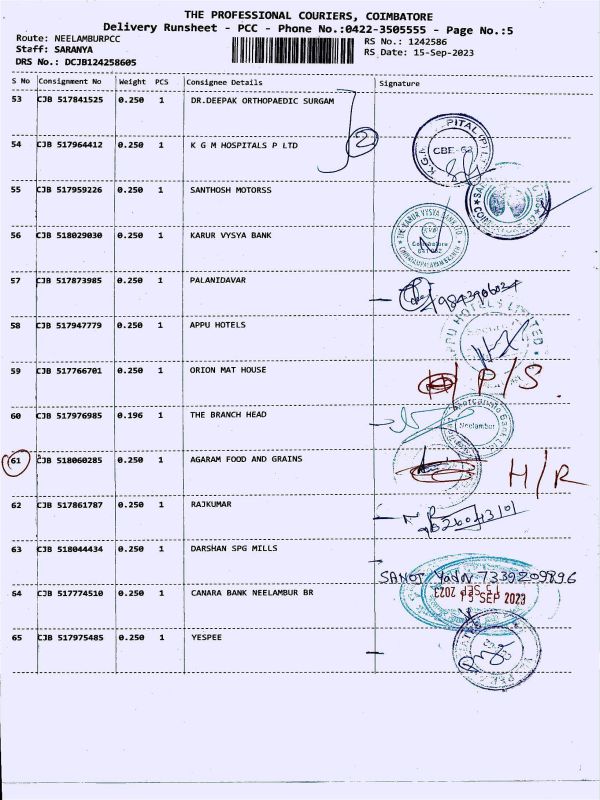 THE PROFESSIONAL COURIERS, COIMBATORE
Delivery Runsheet - PCC - Phone No.:0422-3505555 - Page No.:5
Route: NEELAMBURPCC RS No.: 1242586
Staff: SARANYA RS Date: 15-Sep-2023
DRS No.: DCJB124258605
S No Consignment No Weight PCS Consignee Details Signature
53 CJB 517841525 0.250 1 DR.DEEPAK ORTHOPAEDIC SURGAM
2
54 CJB 517964412 0.250 1 K G M HOSPITALS P LTD
PITAL (P) LT
CBE-62
55 CJB 517959226 0.250 1 SANTHOSH MOTORSS
56 CJB 518029030 0.250 1 KARUR VYSYA BANK
THE KARUR VYSYA BANK LTD
57 CJB 517873985 0.250 1 PALANIDAVAR
9843906034
58 CJB 517947779 0.250 1 APPU HOTELS
HOTELS LIMITED
59 CJB 517766701 0.250 1 ORION MAT HOUSE
P/S.
60 CJB 517976985 0.196 1 THE BRANCH HEAD
Neelambur
61 CJB 518060285 0.250 1 AGARAM FOOD AND GRAINS
H/R
62 CJB 517861787 0.250 1 RAJKUMAR
63 CJB 518044434 0.250 1 DARSHAN SPG MILLS
7339209896
64 CJB 517774510 0.250 1 CANARA BANK NEELAMBUR BR
15 SEP 2023
65 CJB 517975485 0.250 1 YESPEE